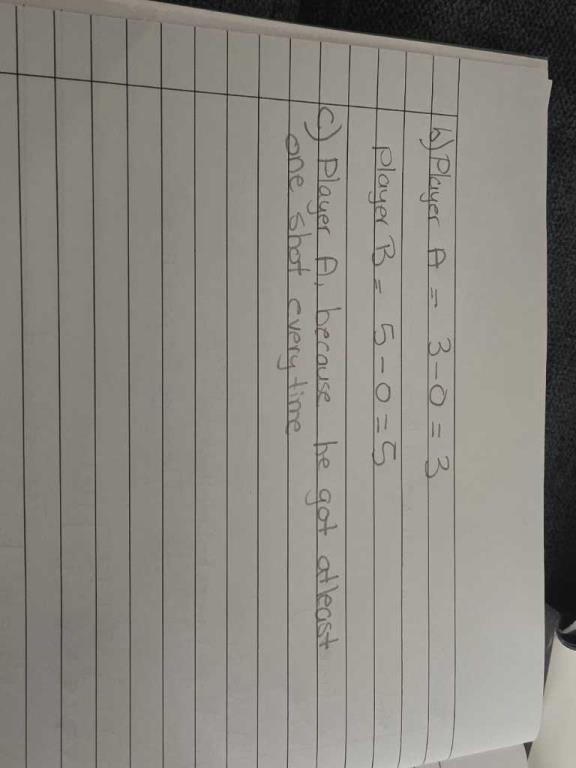 b) Player A = 3-0=3
player B = 5-0=5
c) Player A, because he got atleast
one shot every time